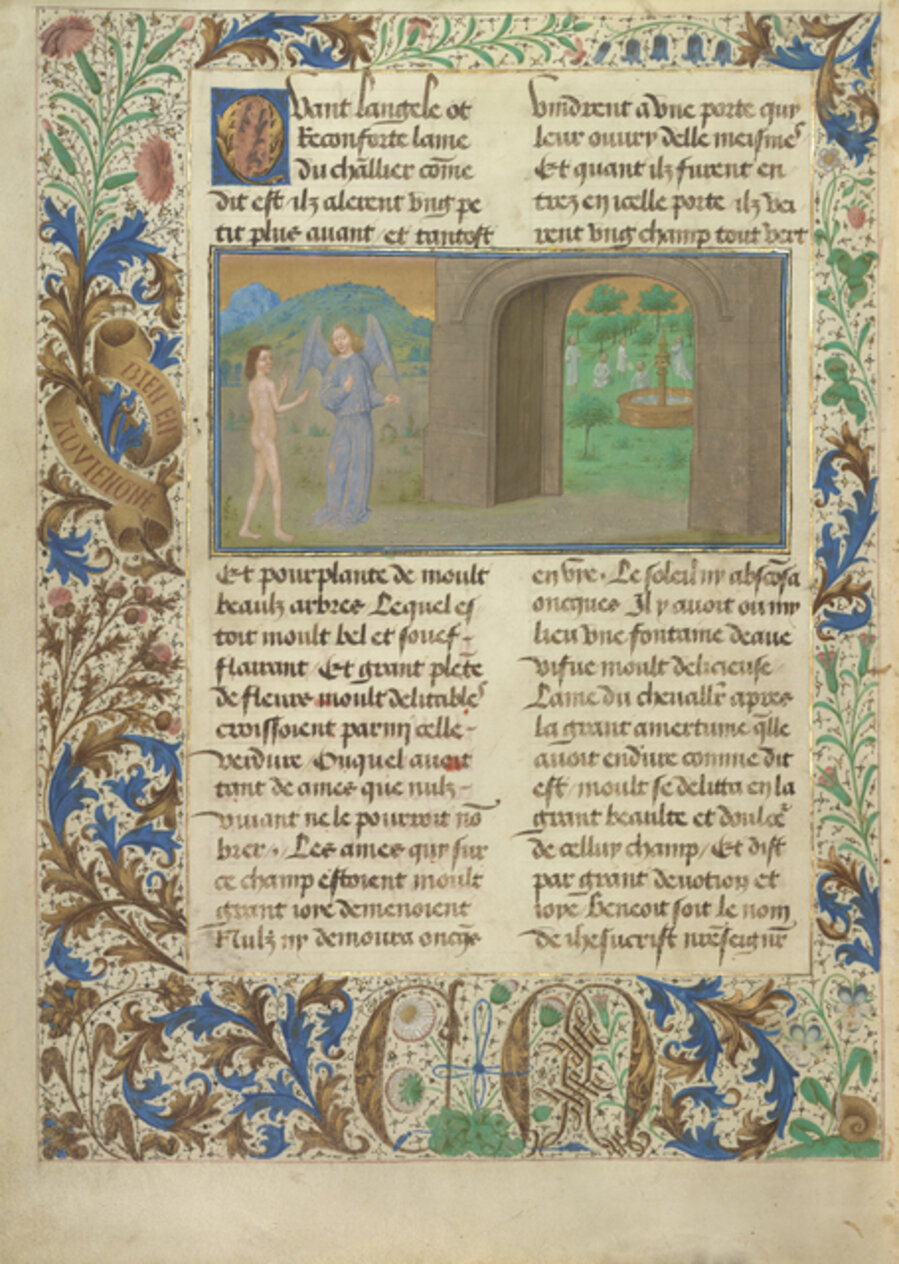 Quant langele ot
Reconforte lame
du chãllier cõme
dit est ilz alerent vng pe
tit plus auant et tantost
Et pourplante de moult
beaulz arbres Lequel es
toit moult bel et souef-
flairant Et grant plẽte
de fleurs moult delitables
croissoient parmy celle-
verdure Ouquel auoit
tant de ames que nulz-
viuant ne le pourroit nõ
brer. Les ames quy sur
ce champ estoient moult
grant ioye demenoient
Nulz ny demoura oncq̃s
vindrent a vne porte quy
leur ouury delle meismes
Et quant ilz furent en
trez en icelle porte ilz vei
rent vng champ tout vert
Le soleil ny absconsa
oncques Il y auoit ou my
lieu vne fontaine deaue
vifue moult delicieuse
Lame du cheuallr̃ apres
la grant amertume q̃lle
auoit endure comme dit
est / moult se delitta en la
grant beaulte et doulcẽr
de celluy champ / Et dist
par grant deuotion et
ioye Benoit soit le nom
de ihesucrist nr̃e seignr̃
BIEN EN
ADVIENGNE
C M